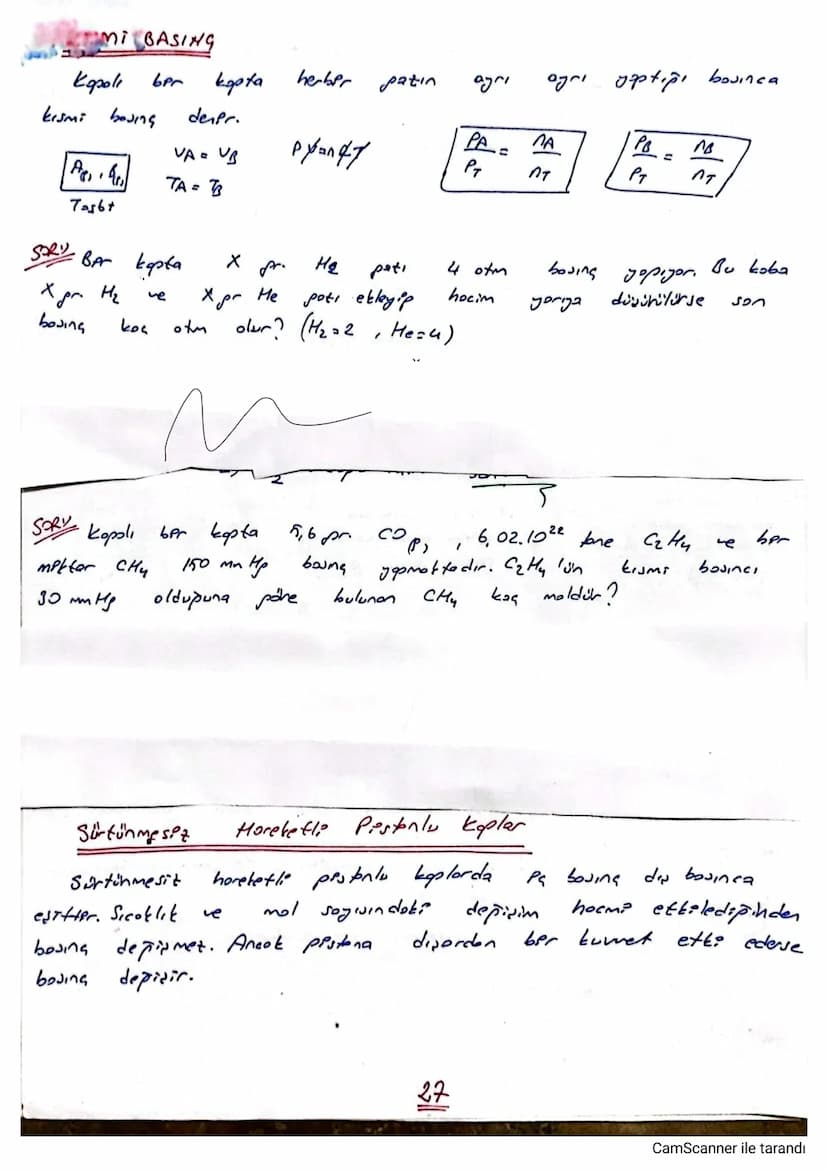 Mİ BASINÇ
Kapalı bir kapta herbir gazın ayrı ayrı yaptığı basınca
kısmi basınç denir.
A(g), B(g)
Tasbt
VA = VB
TA = TB
PV=nRT
PA/PT = nA/nT
PB/PT = nB/nT
SORU Bir kapta X gr. H2 gazı 4 atm basınç yapıyor. Bu kaba
X gr. H2 ve X gr He gazı ekleyip hacim yarıya düşürülürse son
basınç kaç atm olur? (H2=2, He=4)
SORU Kapalı bir kapta 5,6 gr. CO(g), 6,02.10²² tane C2H4 ve bir
miktar CH4 150 mm Hg basınç yapmaktadır. C2H4 'ün kısmi basıncı
30 mm Hg olduğuna göre bulunan CH4 kaç moldür?
Sürtünmesiz Hareketli Pistonlu Kaplar
Sürtünmesiz hareketli pistonlu kaplarda iç basınç dış basınca
eşittir. Sıcaklık ve mol sayısındaki değişim hacmi etkilediğinden
basınç değişmez. Ancak pistona dışardan bir kuvvet etki ederse
basınç değişir.
27
CamScanner ile tarandı